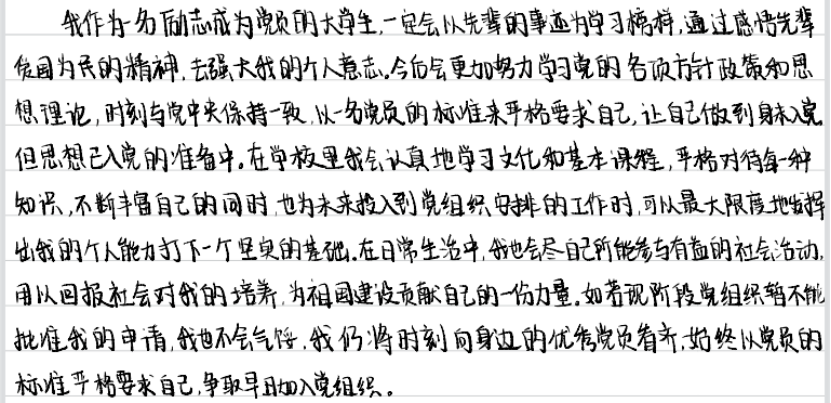 我作为一名励志成为党员的大学生,一定会以先辈的事迹为学习榜样,通过感悟先辈
爱国为民的精神,去强大我的个人意志。今后会更加努力学习党的各项方针政策和思
想理论,时刻与党中央保持一致,以一名党员的标准来严格要求自己,让自己做到身未入党,
但思想已入党的准备中。在学校里我会认真地学习文化和基本课程,严格对待每一种
知识,不断丰富自己的同时,也为未来投入到党组织安排的工作时,可以最大限度地发挥
出我的个人能力打下一个坚实的基础。在日常生活中,我也会尽自己所能参与有益的社会活动,
用以回报社会对我的培养,为祖国建设贡献自己的一份力量。如若现阶段党组织暂不能
批准我的申请,我也不会气馁,我仍将时刻向身边的优秀党员看齐,始终以党员的
标准严格要求自己,争取早日加入党组织。